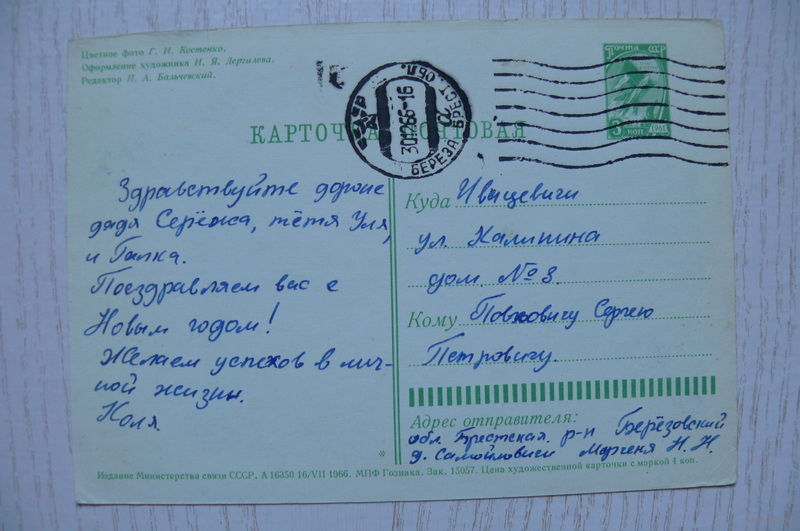 Цветное фото Г. И. Костенко.
Оформление художника И. Я. Дергилева.
Редактор Н. А. Бальчевский.
ПОЧТА СССР
3 коп
1961
СССР
301266-16
БЕРЕЗА БРЕСТ. ОБЛ.
КАРТОЧКА ПОЧТОВАЯ
Здравствуйте дорогие
дядя Серёжа, тётя Уля,
и Галка.
Поздравляем вас с
Новым годом!
Желаем успехов в лич-
ной жизни.
Коля.
Куда Ивацевичи
ул. Калинина
дом. № 8.
Кому Повховичу Сергею
Петровичу.
Адрес отправителя:
обл. Брестская. р-н Берёзовский
д. Самойловичи Н. Н.
*
Издание Министерства связи СССР. А 16350 16/VII 1966. МПФ Гознака. Зак. 15057. Цена художественной карточки с маркой 4 коп.